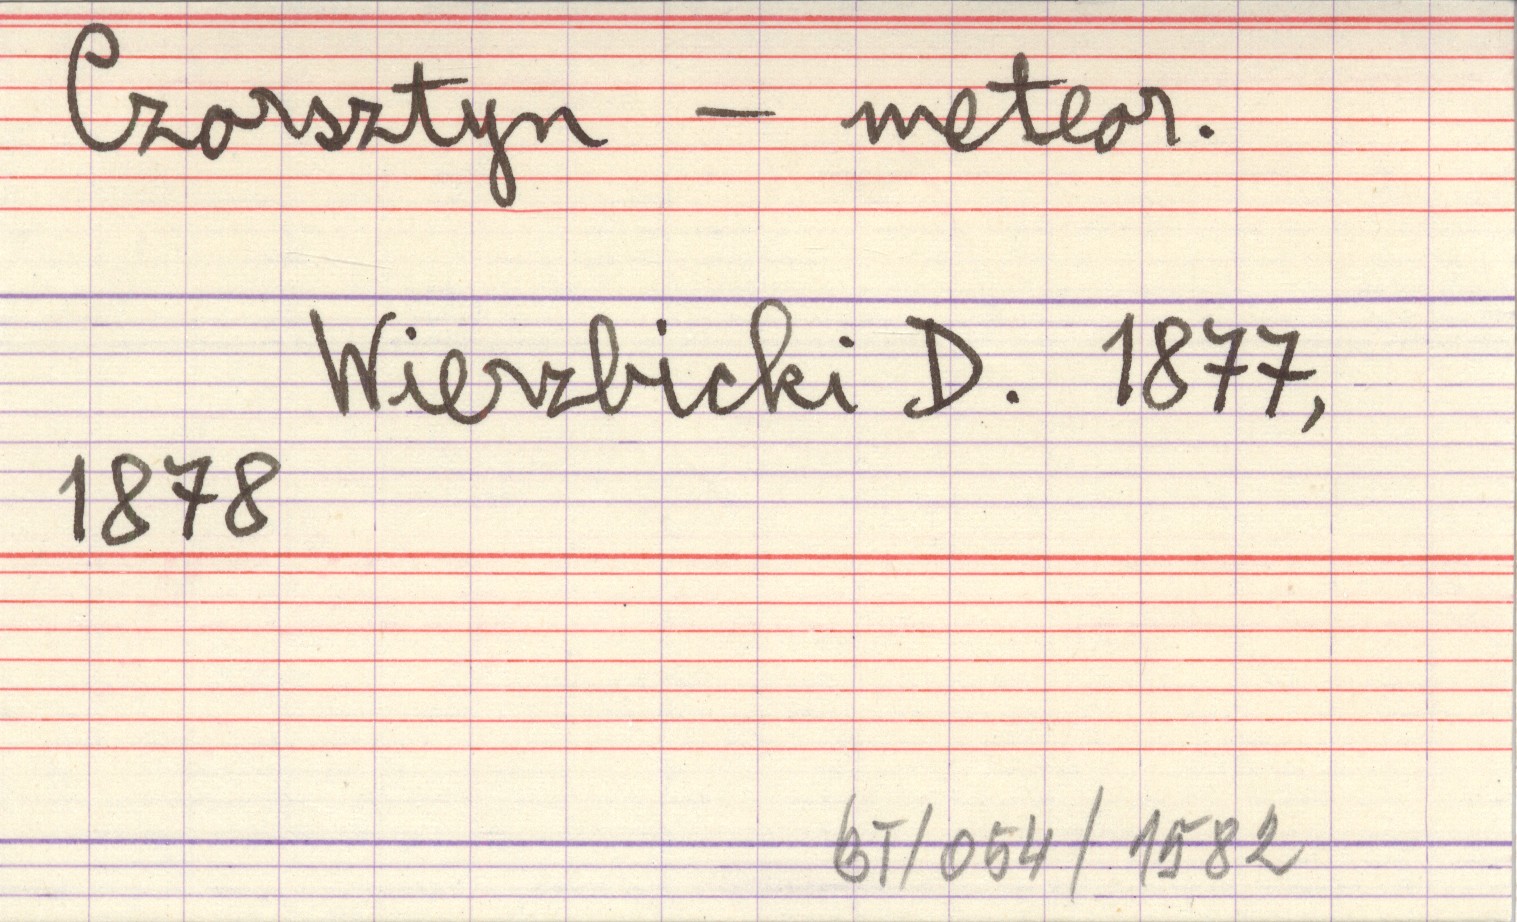 Czorsztyn - meteor.
Wierzbicki D. 1877,
1878
BT/054/1582